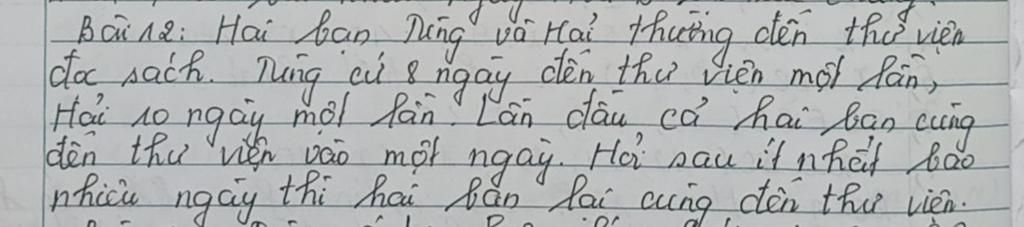 Bài 12: Hai bạn Tùng và Hải thường đến thư viện
đọc sách. Tùng cứ 8 ngày đến thư viện một lần,
Hải 10 ngày một lần. Lần đầu cả hai bạn cùng
đến thư viện vào một ngày. Hỏi sau ít nhất bao
nhiêu ngày thì hai bạn lại cùng đến thư viện.